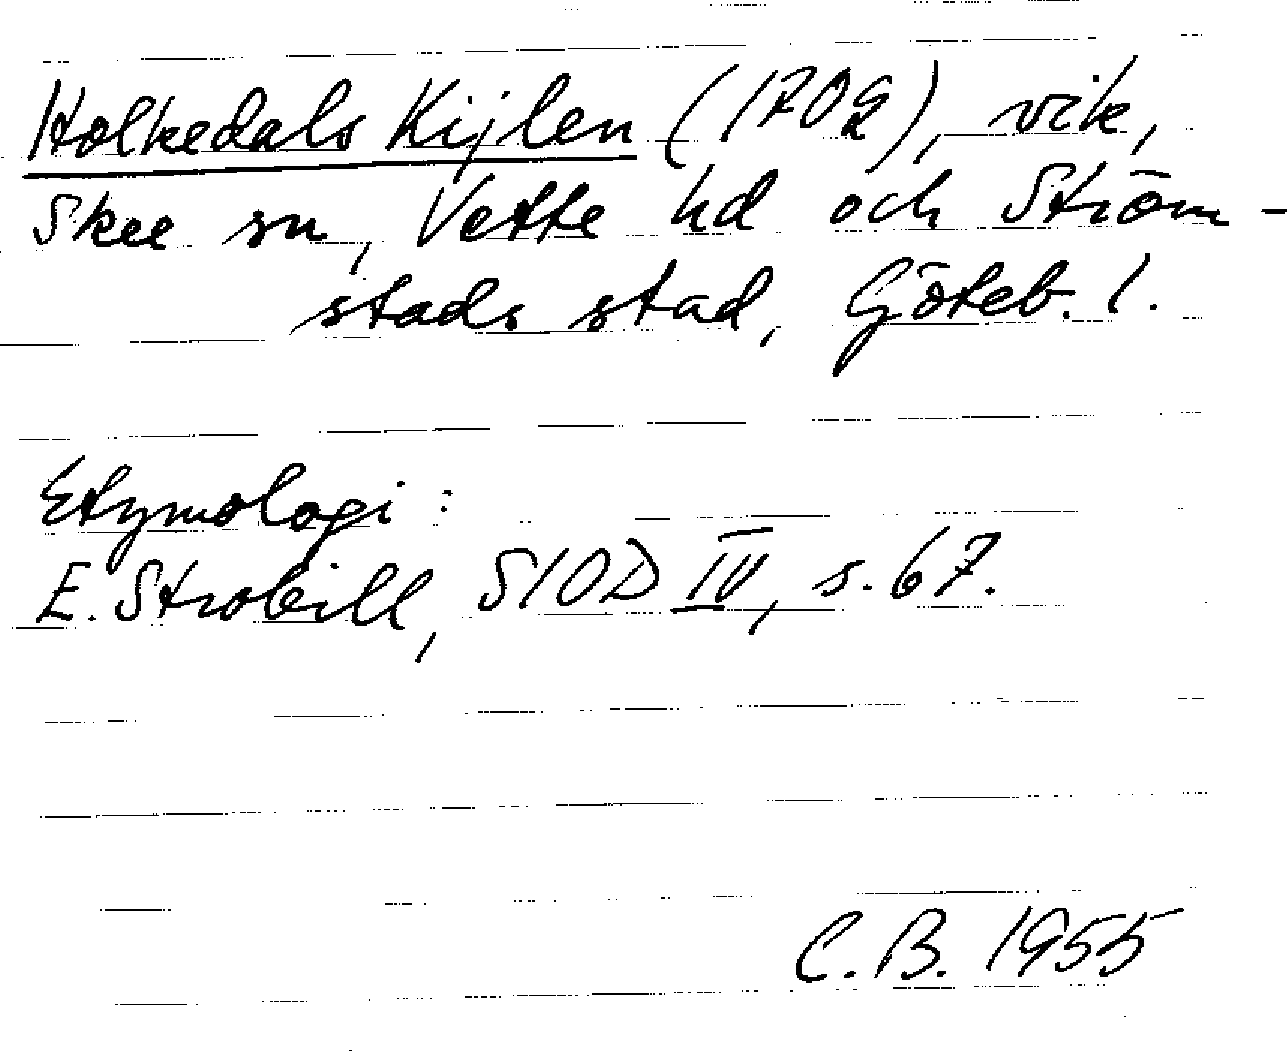 Holkedals Kijlen (1702), vik,
Skee sn, Vette hd och Ström-
stads stad, Göteb. l.
Etymologi:
E. Strobill, SIOD IV, s. 67.
C. B. 1955